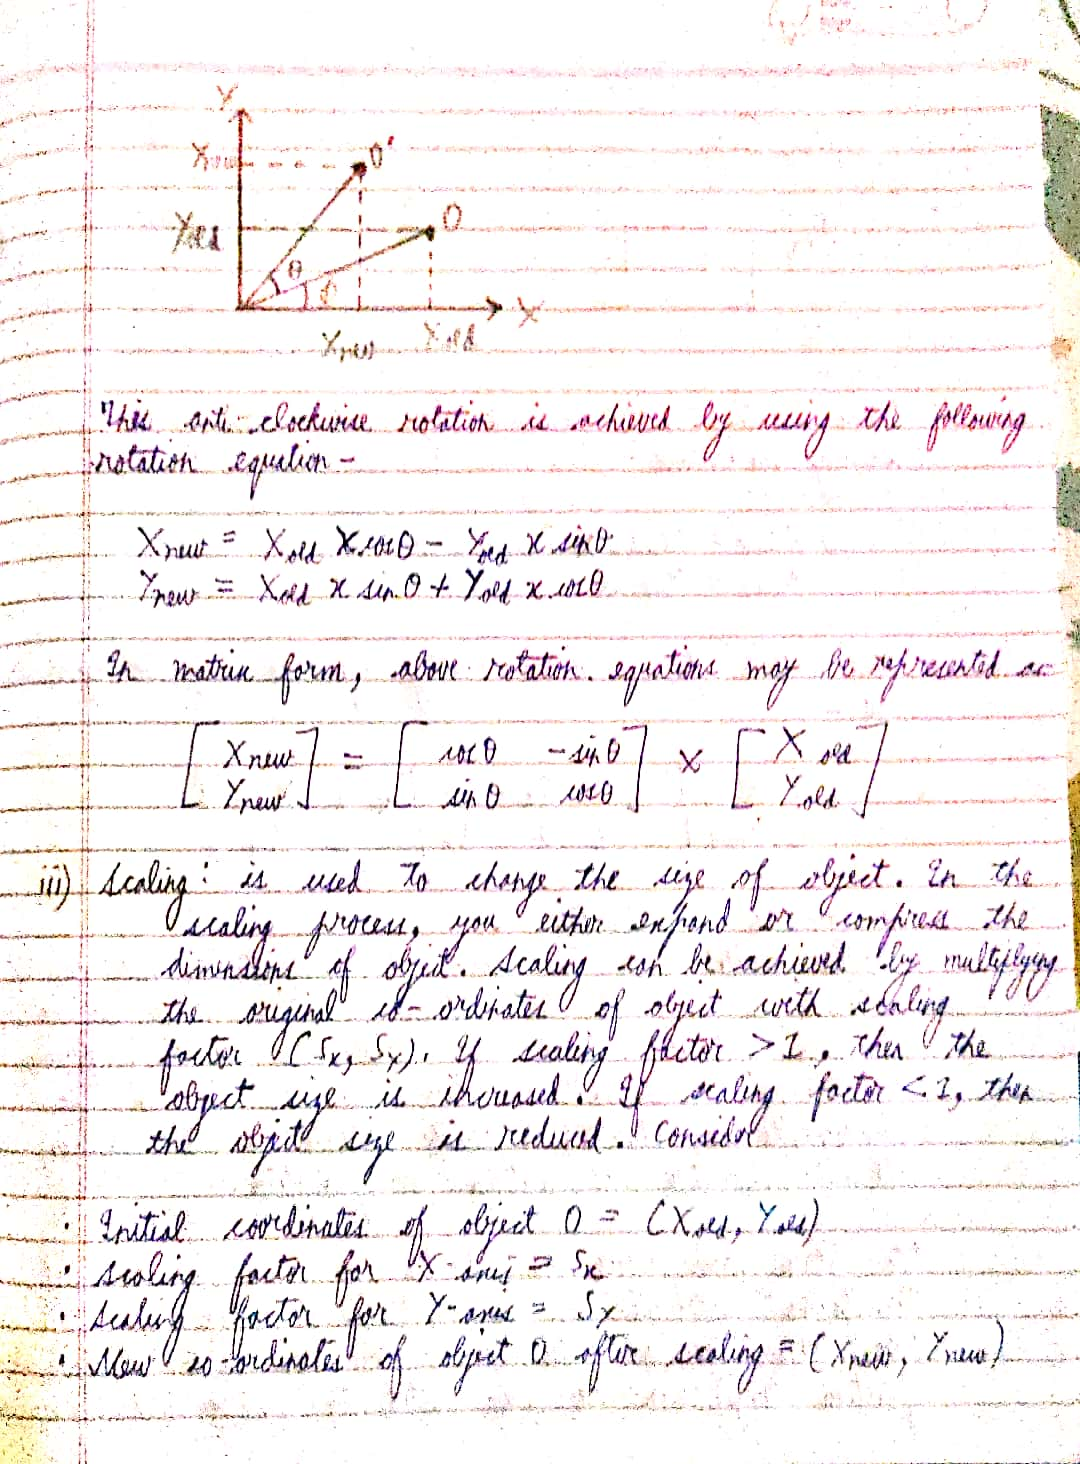 Y
O'
Yold
O
θ
X
Xnew
Xold
This anti-clockwise rotation is achieved by using the following
rotation equation -
Xnew = Xold x cosθ - Yold x sinθ
Ynew = Xold x sinθ + Yold x cosθ
In matrix form, above rotation equations may be represented as
[ Xnew ] = [ cosθ -sinθ ] x [ Xold ]
[ Ynew ] [ sinθ cosθ ] [ Yold ]
iii) Scaling : is used to change the size of object. In the
scaling process, you either expand or compress the
dimensions of object. Scaling can be achieved by multiplying
the original co-ordinates of object with scaling
factor (Sx, Sy). If scaling factor > 1, then the
object size is increased. If scaling factor < 1, then
the object size is reduced. Consider
• Initial coordinates of object O = (Xold, Yold)
• Scaling factor for X-axis = Sx
• Scaling factor for Y-axis = Sy
• New co-ordinates of object O after scaling = (Xnew, Ynew)